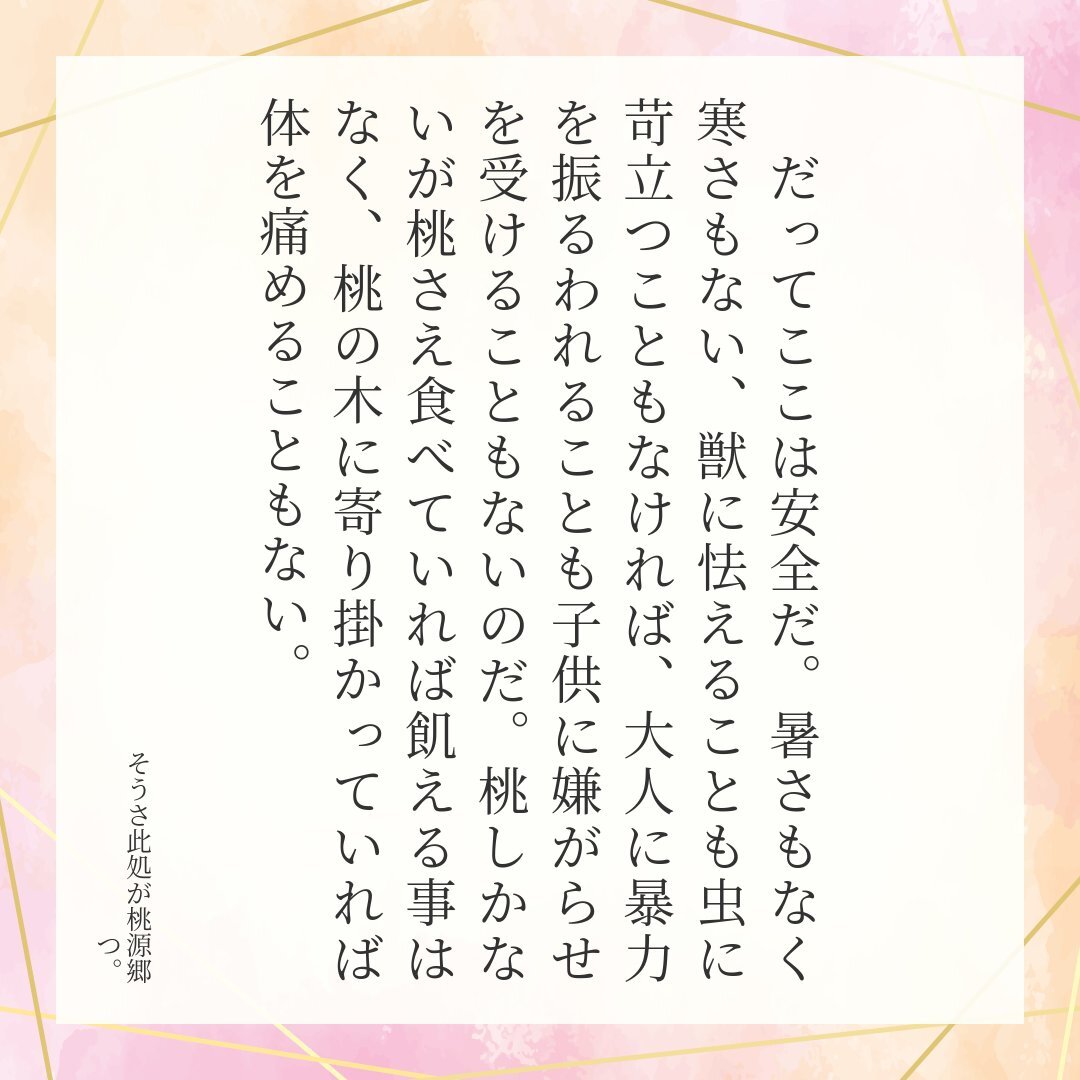 だってここは安全だ。暑さもなく
寒さもない、獣に怯えることも虫に
苛立つこともなければ、大人に暴力
を振るわれることも子供に嫌がらせ
を受けることもないのだ。桃しかな
いが桃さえ食べていれば飢える事は
なく、桃の木に寄り掛かっていれば
体を痛めることもない。
そうさ此処が桃源郷
つ。